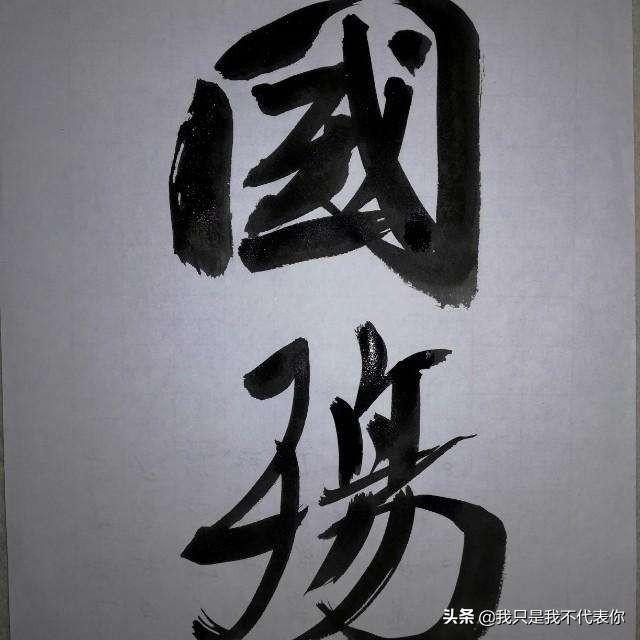 國
殤
头条 @我只是我不代表你